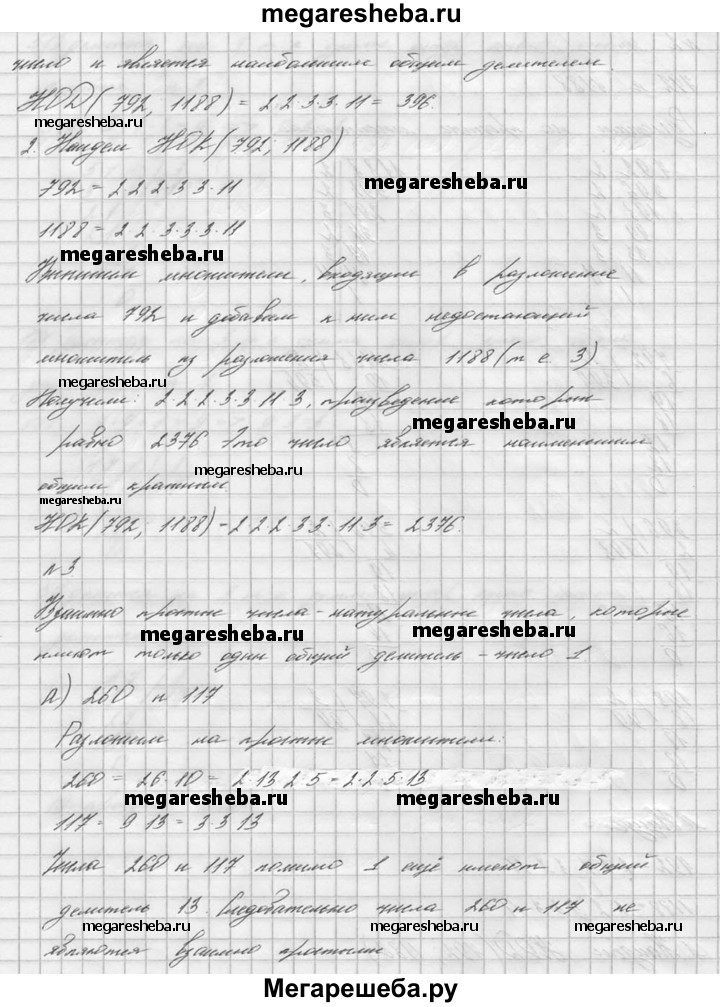 megaresheba.ru
число и является наибольшим общим делителем.
НОД(792, 1188) = 2·2·3·3·11 = 396.
megaresheba.ru
2. Найдем НОК(792; 1188)
792 = 2·2·2·3·3·11
megaresheba.ru
1188 = 2·2·3·3·3·11
megaresheba.ru
Выпишем множители, входящие в разложение
числа 792 и добавим к ним недостающий
множитель из разложения числа 1188 (т.е. 3).
megaresheba.ru
Получили: 2·2·2·3·3·11·3, произведение которых
megaresheba.ru
равно 2376 Это число является наименьшим
megaresheba.ru
общим кратным
megaresheba.ru
НОК(792; 1188) = 2·2·2·3·3·11·3 = 2376.
№3
Взаимно простые числа - натуральные числа, которые
megaresheba.ru megaresheba.ru
имеют только один общий делитель - число 1
а) 260 и 117
Разложим на простые множители:
260 = 26·10 = 2·13·2·5 = 2·2·5·13
megaresheba.ru megaresheba.ru
117 = 9·13 = 3·3·13
Числа 260 и 117 помимо 1 ещё имеют общий
делитель 13. Следовательно числа 260 и 117 не
megaresheba.ru megaresheba.ru megaresheba.ru
являются взаимно простыми
Мегарешеба.ру